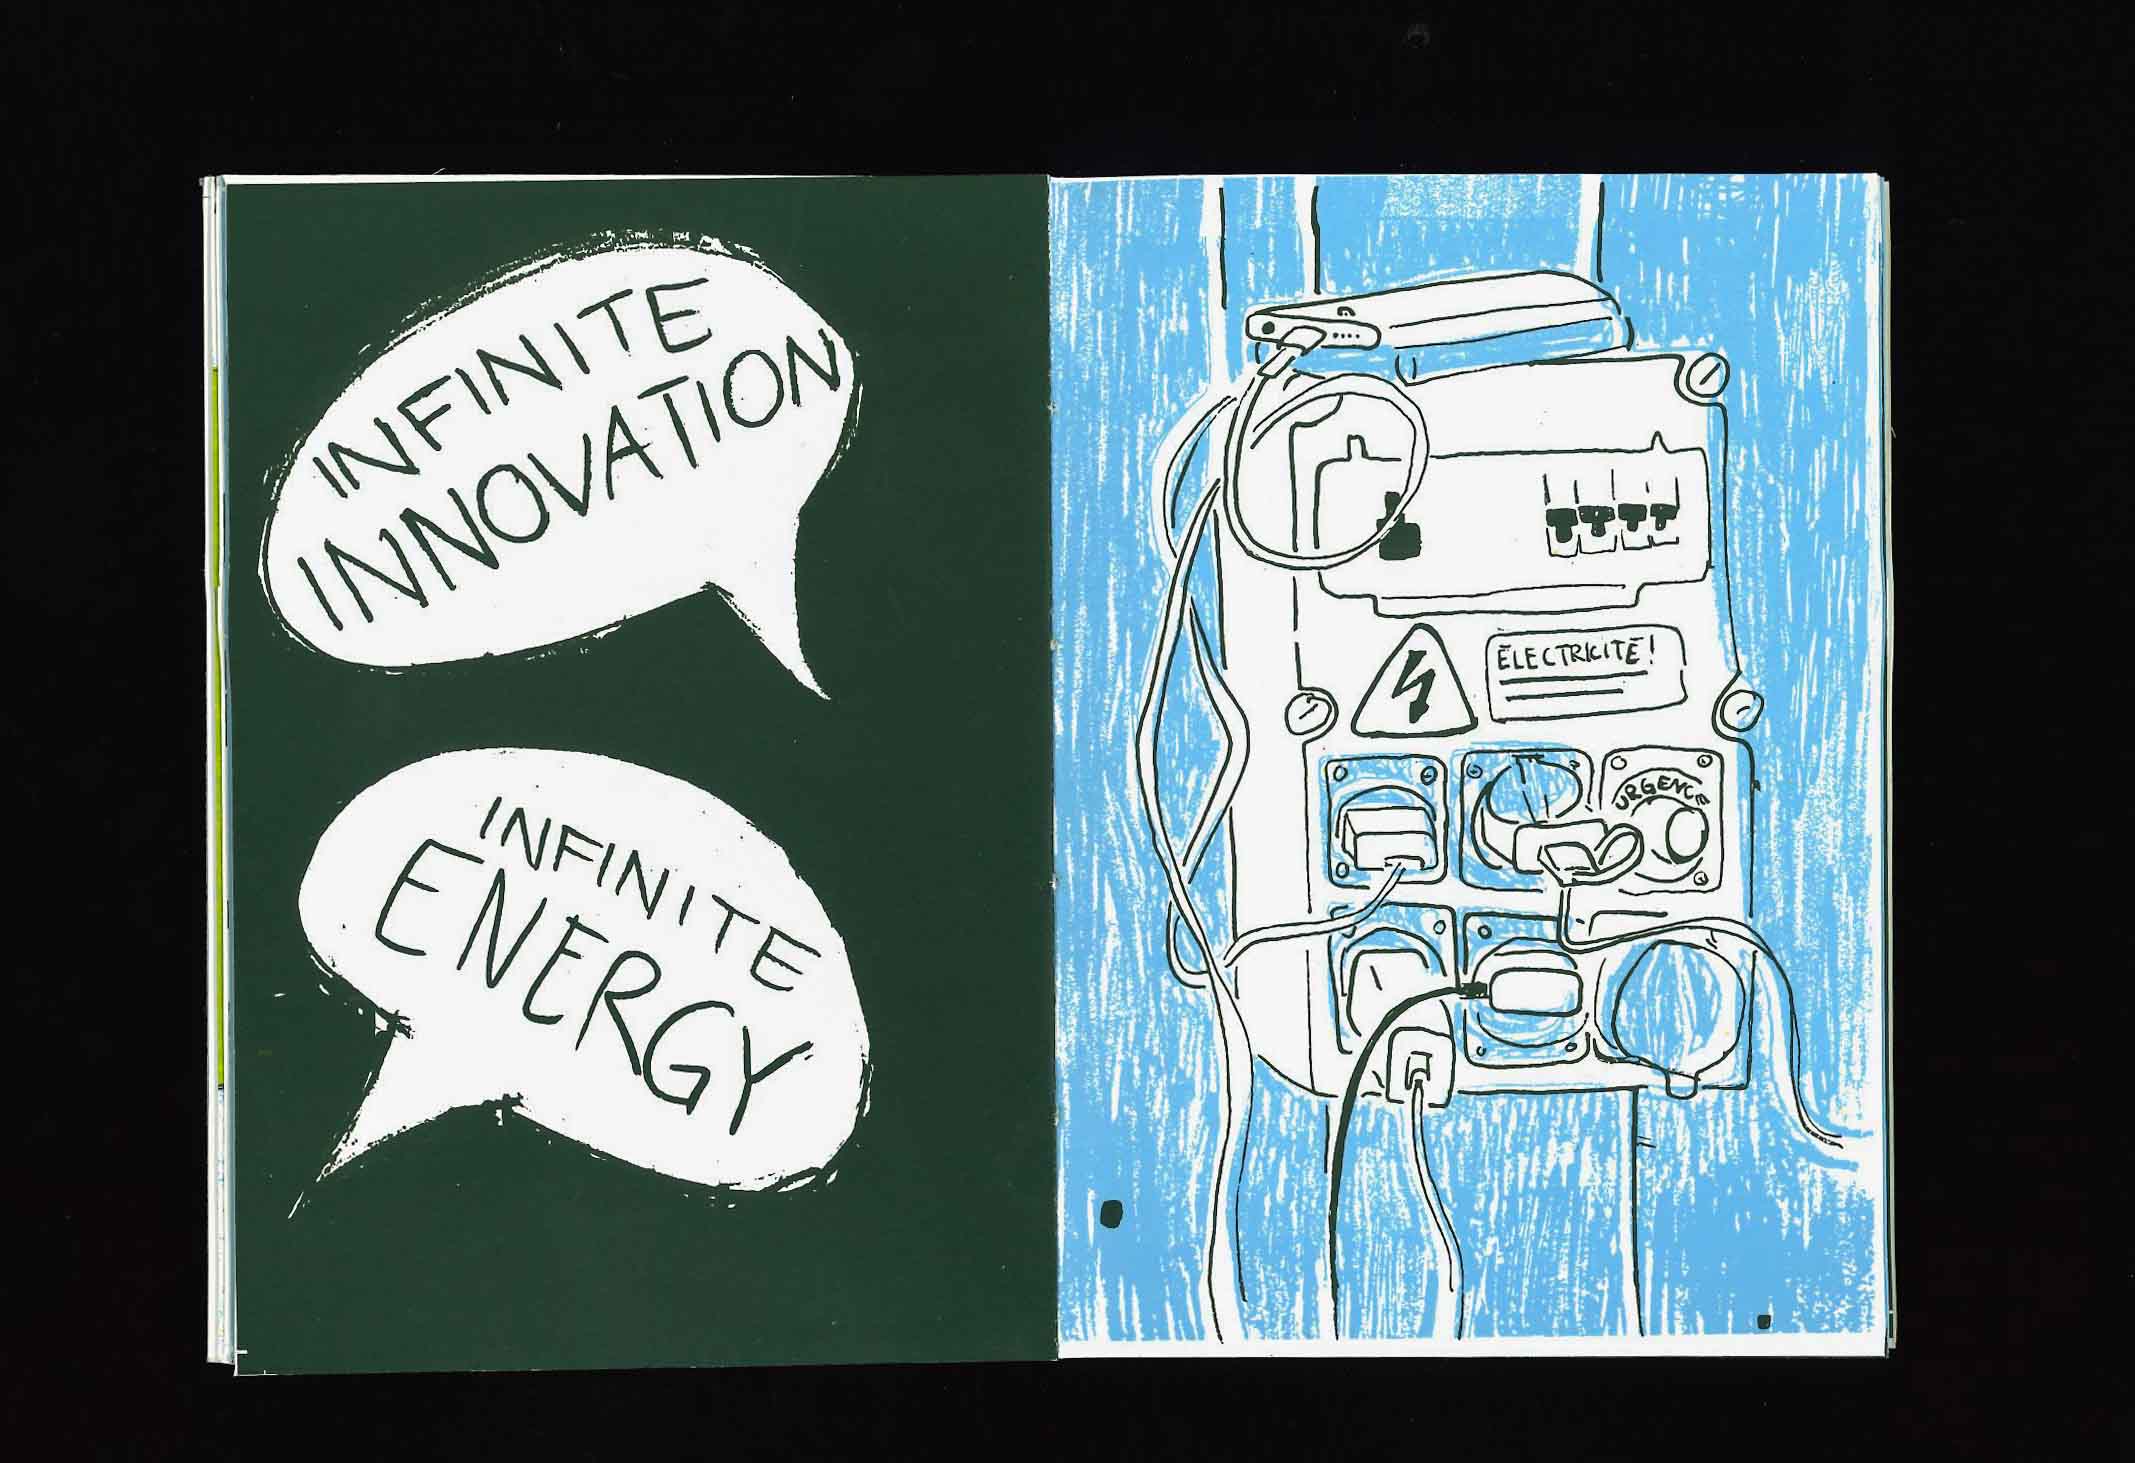 INFINITE
INNOVATION
INFINITE
ENERGY
ÉLECTRICITÉ!
URGENCE